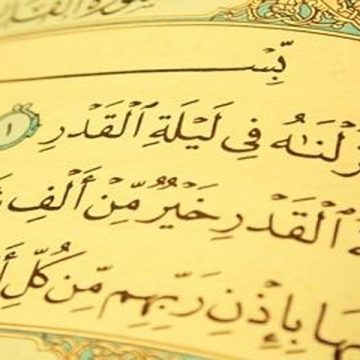 بِسْ
نَزَلْنَٰهُ فِي لَيْلَةِ ٱلْقَدْرِ ١
ٱلْقَدْرِ خَيْرٌ مِّنْ أَلْفِ
بِإِذْنِ رَبِّهِم مِّن كُلِّ